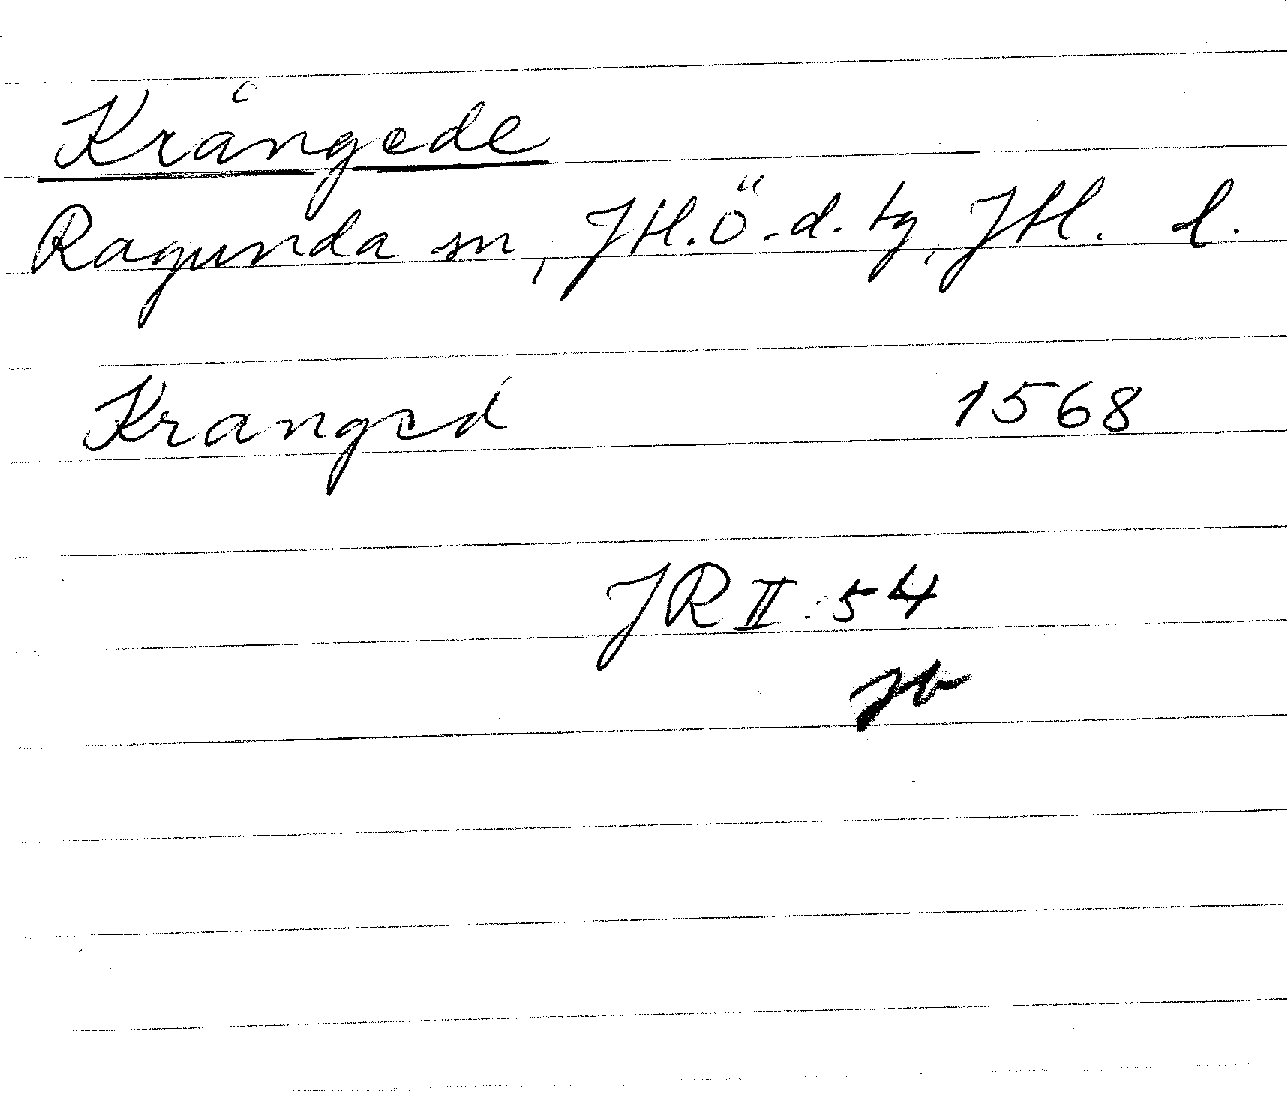 Krångede
Ragunda sn, JH.Ö.d. tg, JH. l.
Kranged 1568
JR II: 54
jb